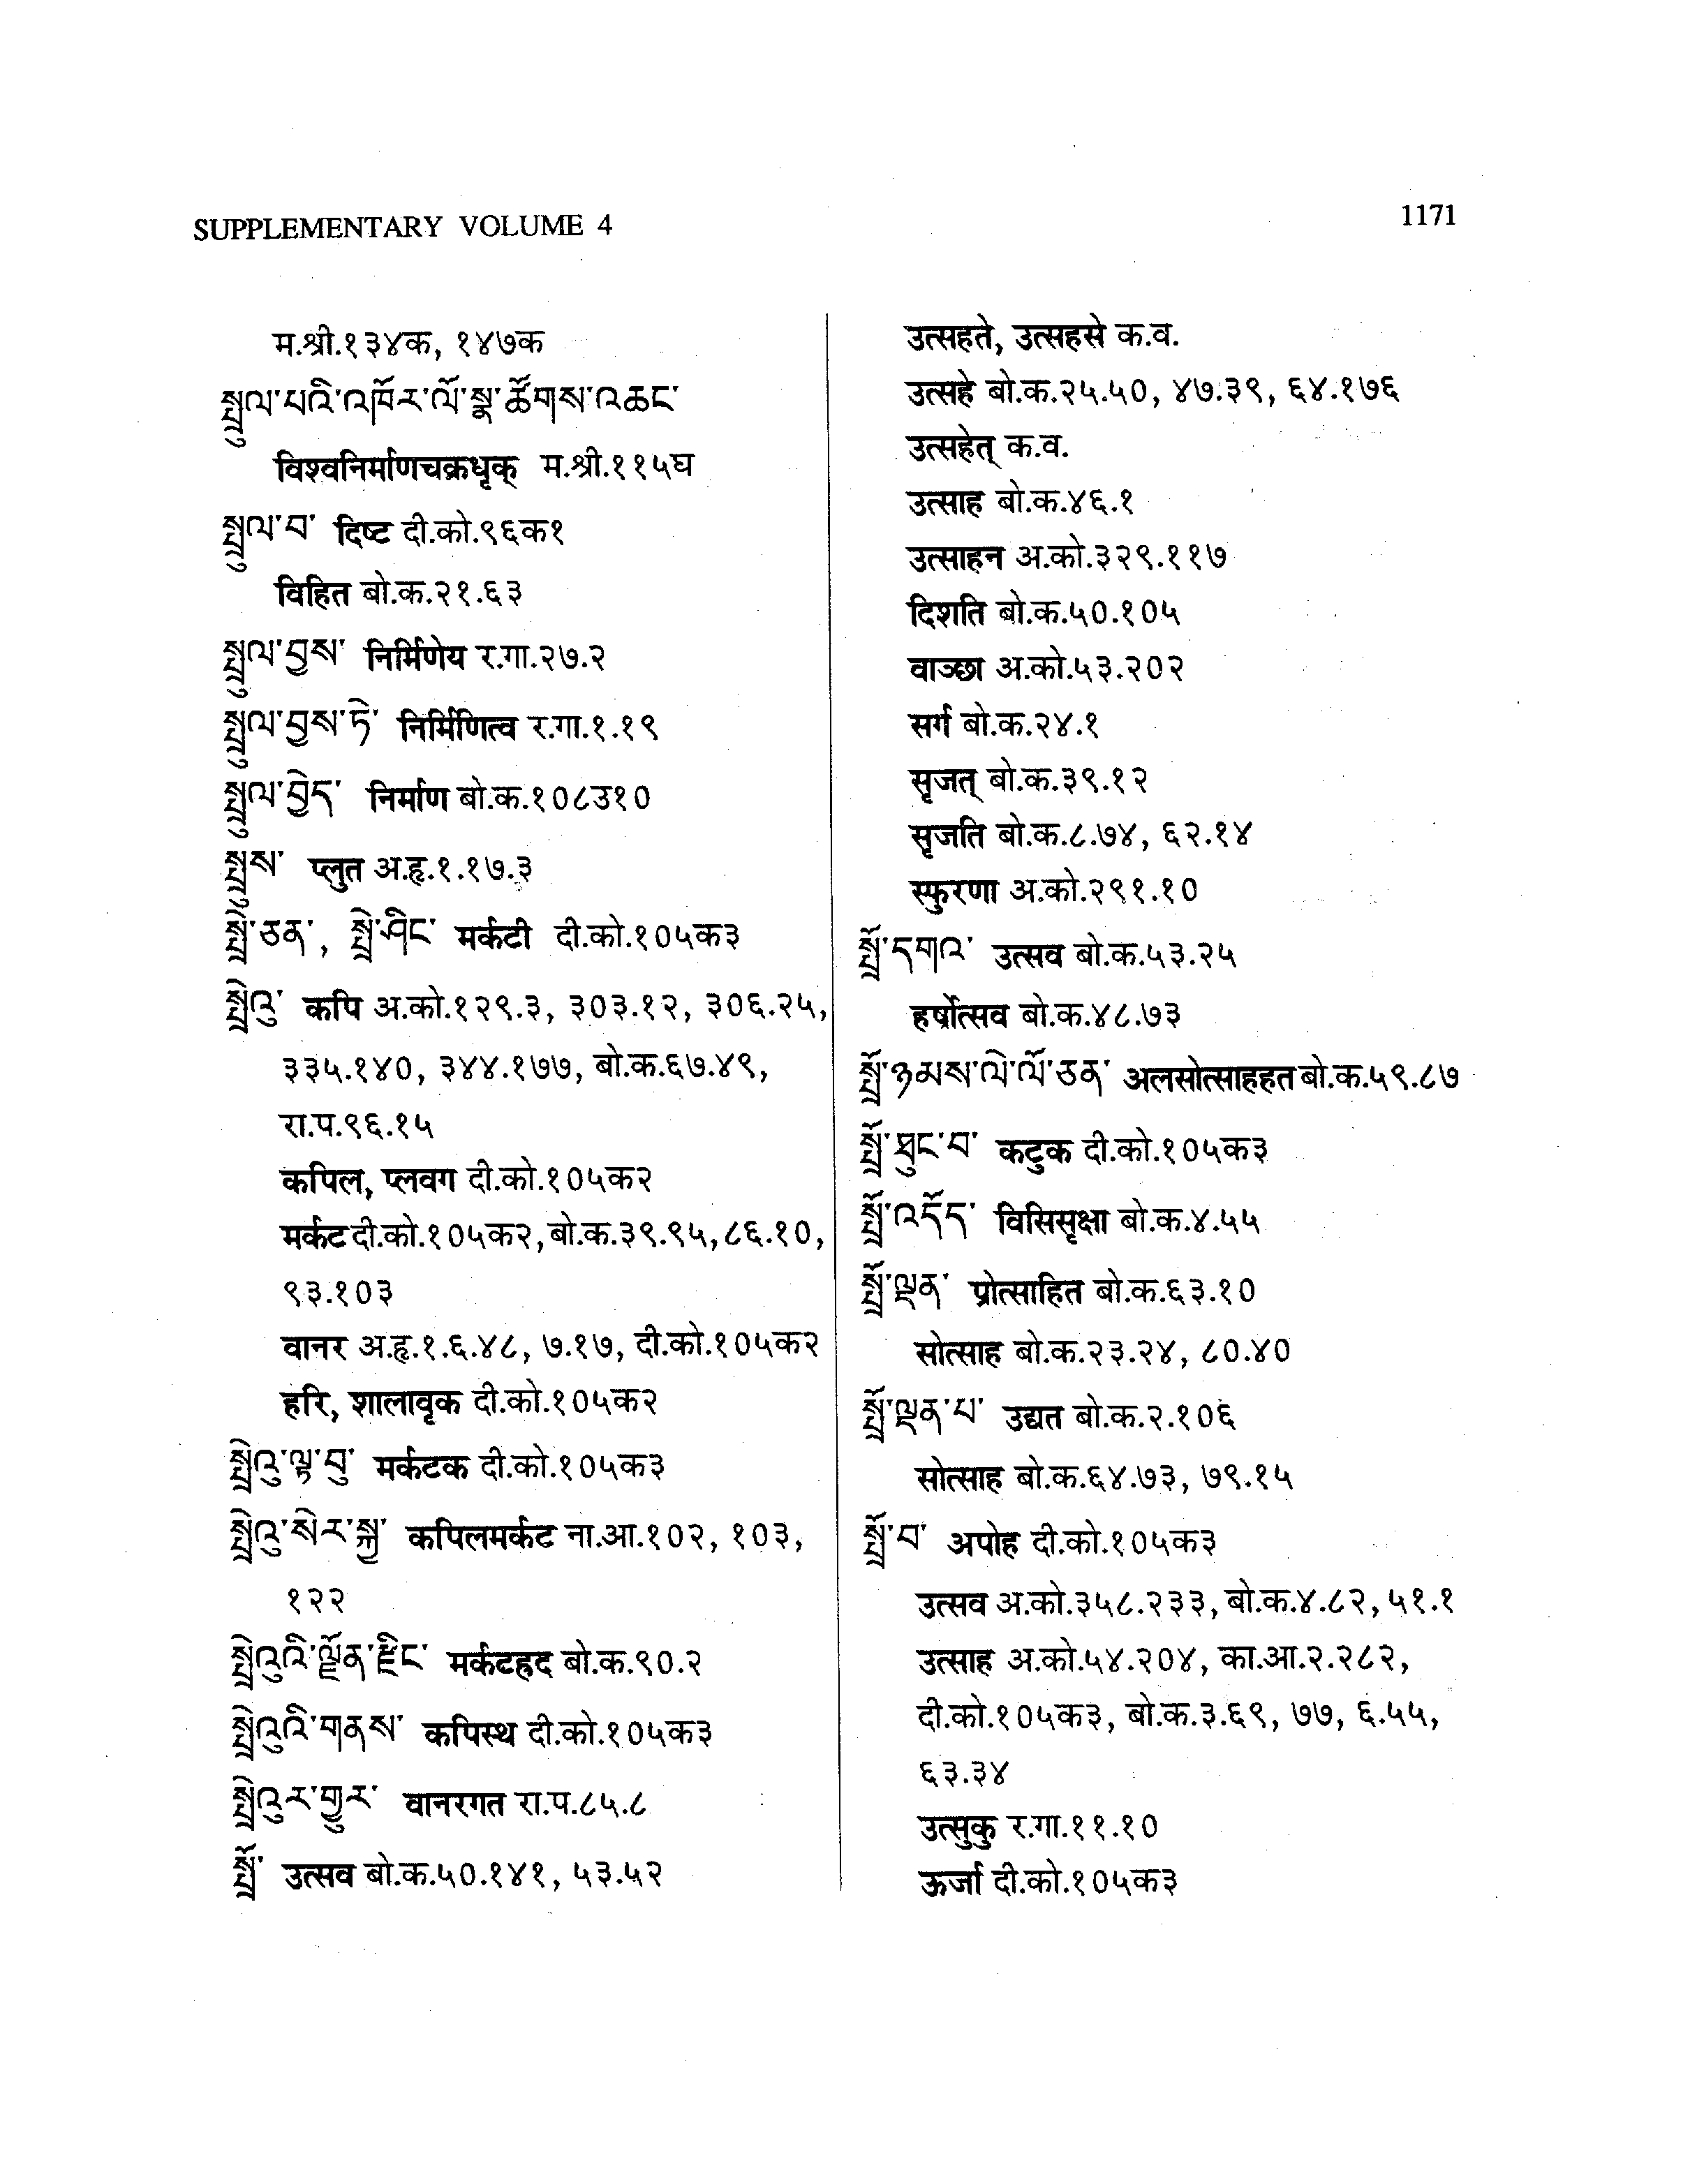 SUPPLEMENTARY VOLUME 4
1171
म.श्री.१३४क, १४७क
སྤྲུལ་པའི་འཁོར་ལོ་སྣ་ཚོགས་འཆང་
विश्वनिर्माणचक्रधृक् म.श्री.११५घ
སྤྲུལ་བ་ दिष्ट दी.को.९६क१
विहित बो.क.२१.६३
སྤྲུལ་བྱས་ निर्मिणेय र.गा.२७.२
སྤྲུལ་བྱས་ཏེ་ निर्मिणित्व र.गा.१.१९
སྤྲུལ་བྱེད་ निर्माण बो.क.१०८उ१०
སྤྲུས་ प्लुत अ.हृ.१.१७.३
སྤྲེ་ཅན་, སྤྲེ་ཤིང་ मर्कटी दी.को.१०५क३
སྤྲེའུ་ कपि अ.को.१२९.३, ३०३.१२, ३०६.२५,
३३५.१४०, ३४४.१७७, बो.क.६७.४९,
रा.प.९६.१५
कपिल, प्लवग दी.को.१०५क२
मर्कट दी.को.१०५क२, बो.क.३९.९५, ८६.१०,
९३.१०३
वानर अ.हृ.१.६.४८, ७.१७, दी.को.१०५क२
हरि, शालावृक दी.को.१०५क२
སྤྲེའུ་ལྟ་བུ་ मर्कटक दी.को.१०५क३
སྤྲེའུ་སེར་སྐྱ་ कपिलमर्कट ना.आ.१०२, १०३,
१२२
སྤྲེའུའི་ལྗོན་རྫིང་ मर्कटह्रद बो.क.९०.२
སྤྲེའུའི་གནས་ कपिस्थ दी.को.१०५क३
སྤྲེའུར་གྱུར་ वानरगत रा.प.८५.८
སྤྲོ་ उत्सव बो.क.५०.१४१, ५३.५२
उत्सहते, उत्सहसे क.व.
उत्सहे बो.क.२५.५०, ४७.३९, ६४.१७६
उत्सहेत् क.व.
उत्साह बो.क.४६.१
उत्साहन अ.को.३२९.११७
दिशति बो.क.५०.१०५
वाञ्छा अ.को.५३.२०२
सर्ग बो.क.२४.१
सृजत् बो.क.३९.१२
सृजति बो.क.८.७४, ६२.१४
स्फुरणा अ.को.२९१.१०
སྤྲོ་དགའ་ उत्सव बो.क.५३.२५
हर्षोत्सव बो.क.४८.७३
སྤྲོ་ཉམས་ལེ་ལོ་ཅན་ अलसोत्साहहत बो.क.५९.८७
སྤྲོ་ཐུང་བ་ कटुक दी.को.१०५क३
སྤྲོ་འདོད་ विसिसृक्षा बो.क.४.५५
སྤྲོ་ལྡན་ प्रोत्साहित बो.क.६३.१०
सोत्साह बो.क.२३.२४, ८०.४०
སྤྲོ་ལྡན་པ་ उद्यत बो.क.२.१०६
सोत्साह बो.क.६४.७३, ७९.१५
སྤྲོ་བ་ अपोह दी.को.१०५क३
उत्सव अ.को.३५८.२३३, बो.क.४.८२, ५१.१
उत्साह अ.को.५४.२०४, का.आ.२.२८२,
दी.को.१०५क३, बो.क.३.६९, ७७, ६.५५,
६३.३४
उत्सुकु र.गा.११.१०
ऊर्जा दी.को.१०५क३